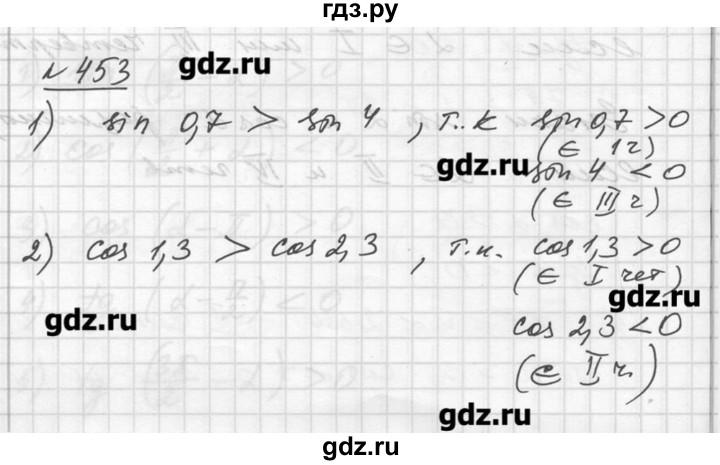 гдз.ру
№453
gdz.ru
1) sin 0,7 > sin 4 , т.к sin 0,7 >0
(∈ I ч)
gdz.ru
sin 4 <0
(∈ III ч)
2) cos 1,3 > cos 2,3 , т.к. cos 1,3 >0
(∈ I чет)
gdz.ru
gdz.ru
cos 2,3 <0
(∈ II ч.)
gdz.ru
gdz.ru